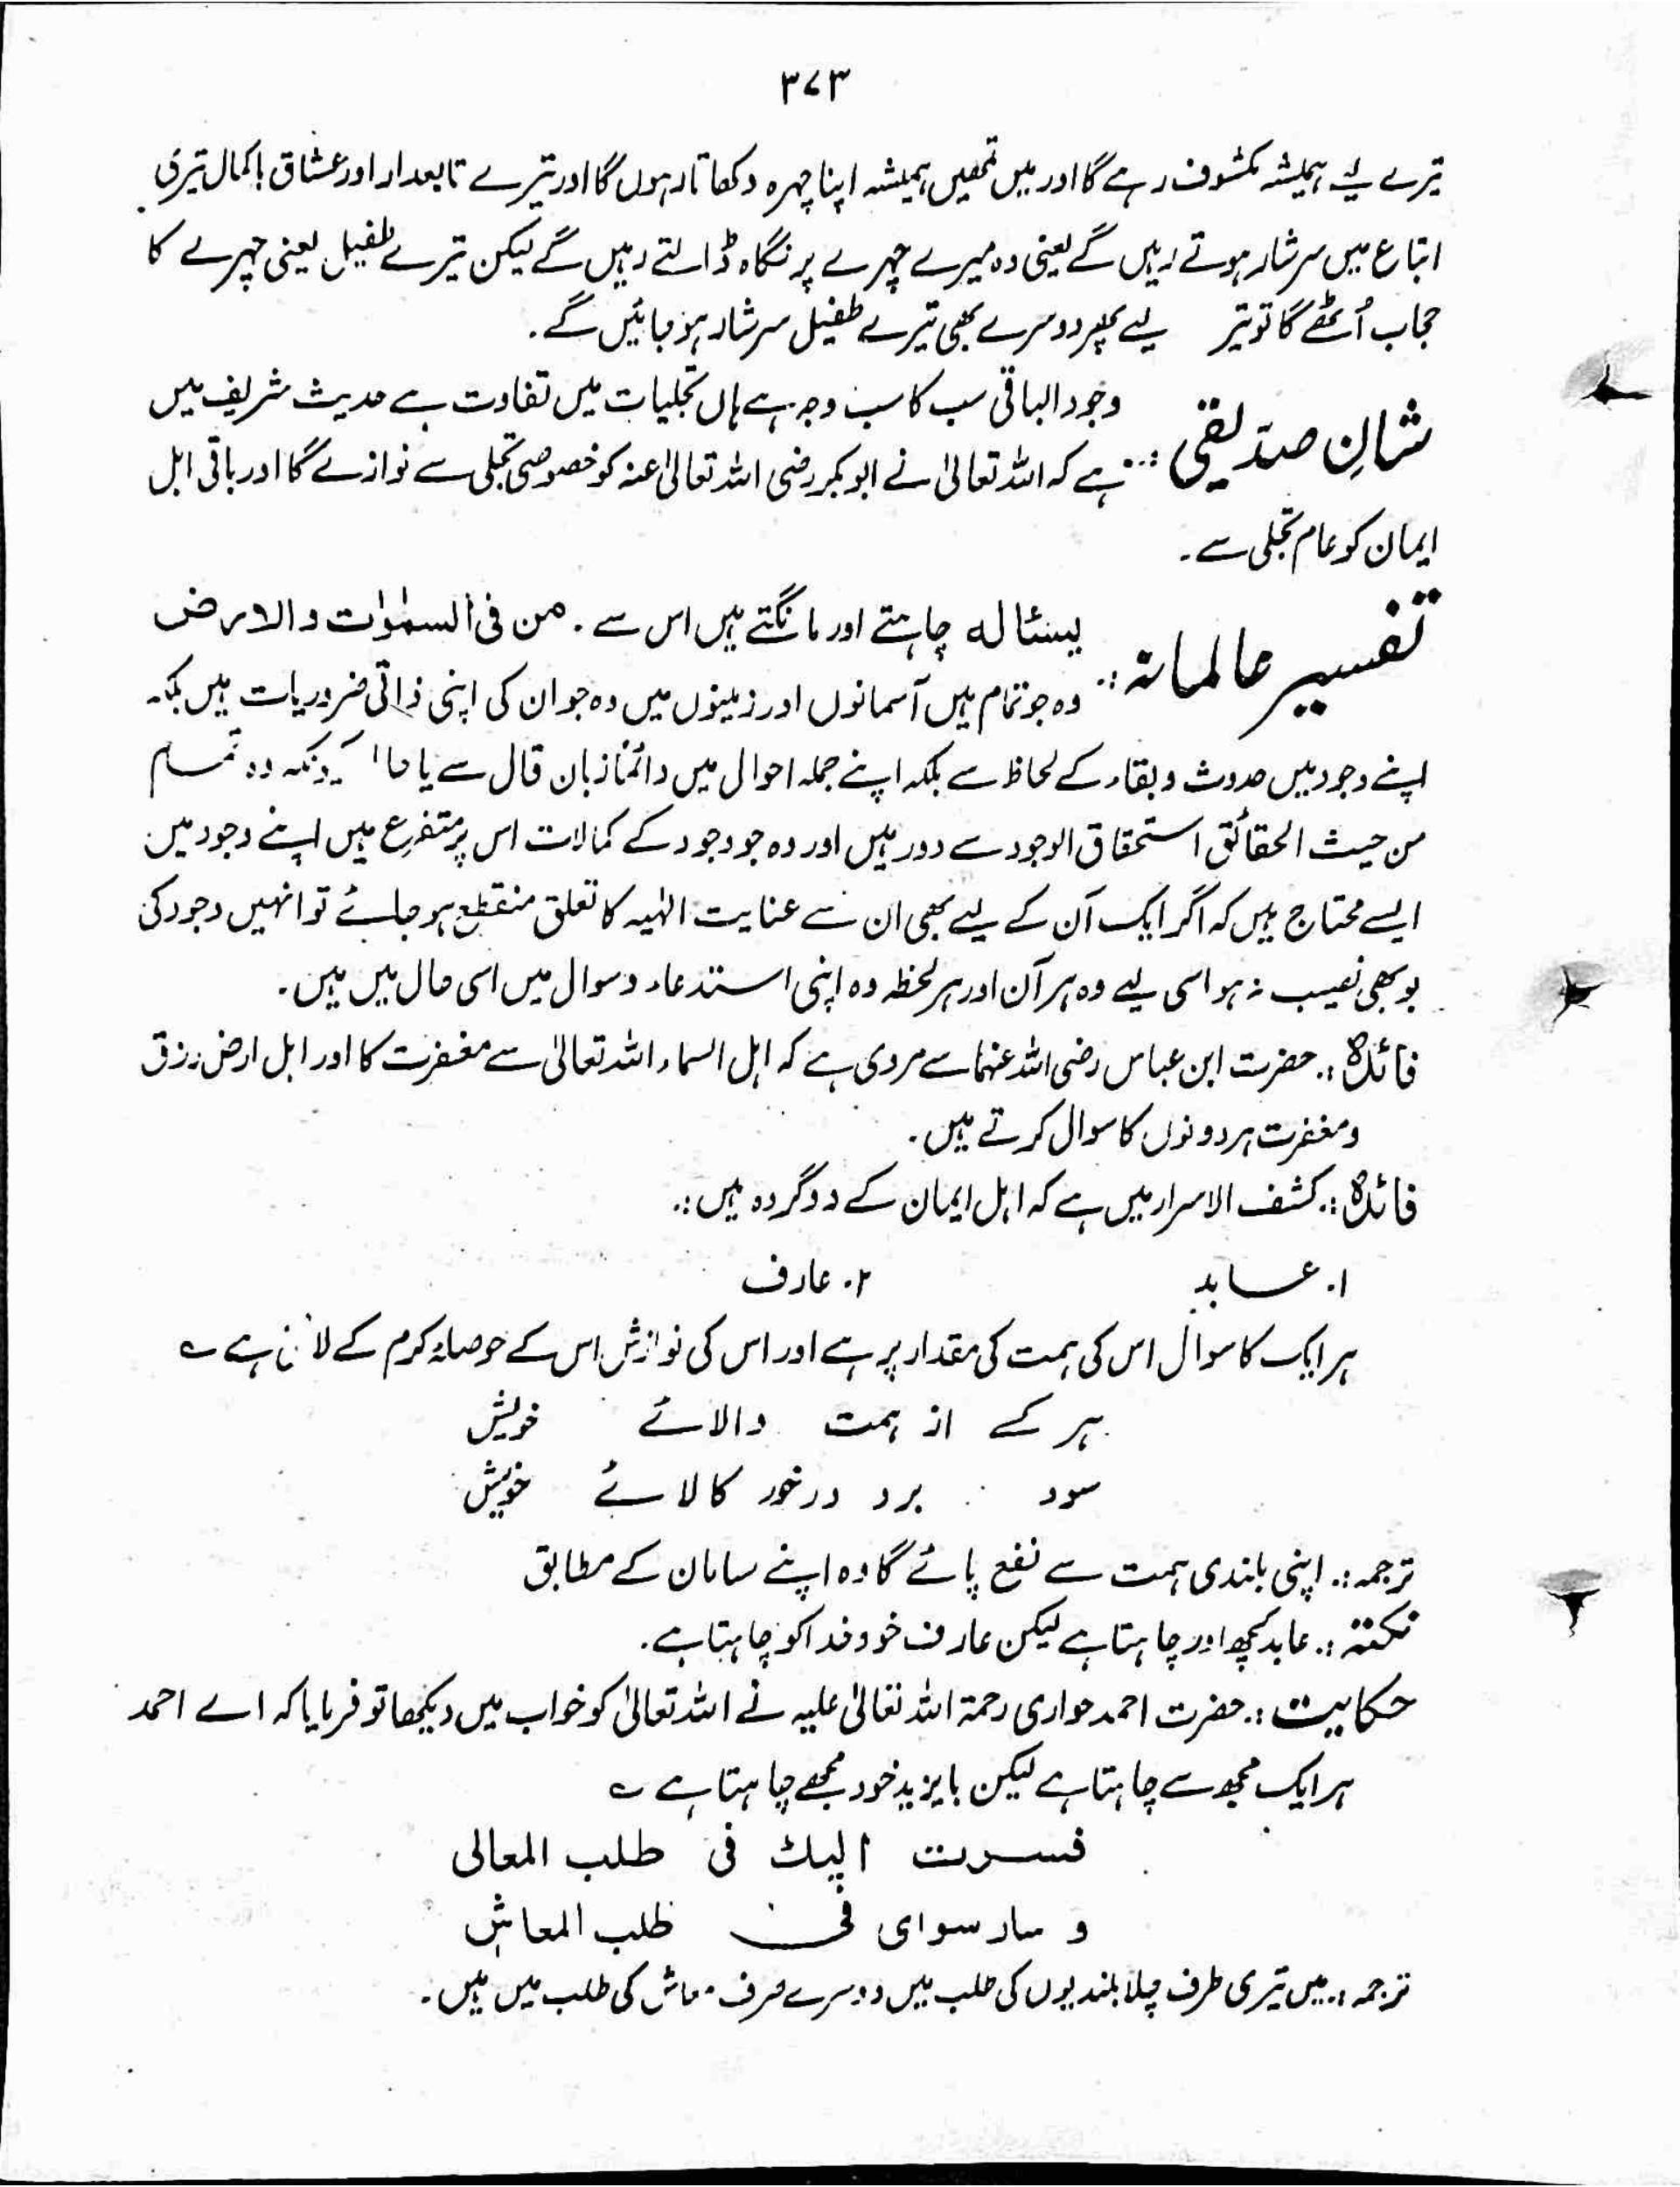 ۳۷۳
تیرے لیے ہمیشہ مکشوف رہے گا اور میں تمھیں ہمیشہ اپنا چہرہ دکھاتا رہوں گا اور تیرے تابعدار اور عشاق باکمال تیری
اتباع میں سرشار ہوتے رہیں گے یعنی وہ میرے چہرے پر نگاہ ڈالتے رہیں گے لیکن تیرے طفیل یعنی چہرے کا
حجاب اُٹھے گا تو تیر لیے پھر دوسرے بھی تیرے طفیل سرشار ہو جائیں گے۔
شانِ صدیقی :۔ وجود الباقی سب کا سب وجہ ہے ہاں تجلیات میں تفاوت ہے حدیث شریف میں
ہے کہ اللہ تعالیٰ نے ابوبکر رضی اللہ تعالیٰ عنہ کو خصوصی تجلی سے نوازے گا اور باقی اہل
ایمان کو عام تجلی سے۔
تفسیر عالمانہ :۔ یسئالہ چاہتے اور مانگتے ہیں اس سے۔ من فی السمٰوٰت والارض
وہ جو تمام ہیں آسمانوں اور زمینوں میں وہ جو ان کی اپنی ذاتی ضروریات ہیں بلکہ
اپنے وجود میں حدوث و بقاء کے لحاظ سے بلکہ اپنے جملہ احوال میں دائماً زبان قال سے یا حا کیونکہ وہ تمام
من حیث الحقائق استحقاق الوجود سے دور ہیں اور وہ جو وجود کے کمالات اس پر متفرع ہیں اپنے وجود میں
ایسے محتاج ہیں کہ اگر ایک آن کے لیے بھی ان سے عنایت الٰہیہ کا تعلق منقطع ہو جائے تو انہیں وجود کی
بو بھی نصیب نہ ہو اسی لیے وہ ہر آن اور ہر لحظہ وہ اپنی استدعاء و سوال میں اسی حال میں ہیں۔
فائدہ :۔ حضرت ابن عباس رضی اللہ عنہما سے مروی ہے کہ اہل السماء اللہ تعالیٰ سے مغفرت کا اور اہل ارض رزق
و مغفرت ہر دونوں کا سوال کرتے ہیں۔
فائدہ :۔ کشف الاسرار میں ہے کہ اہل ایمان کے دو گروہ ہیں :۔
۱۔ عابد ۲۔ عارف
ہر ایک کا سوال اس کی ہمت کی مقدار پر ہے اور اس کی نوازش اس کے حوصلۂ کرم کے لائق ہے ؎
ہر کسے از ہمت والائے خویش
سود برد درخور کالائے خویش
ترجمہ :۔ اپنی بلندی ہمت سے نفع پائے گا وہ اپنے سامان کے مطابق
نکتہ :۔ عابد کچھ اور چاہتا ہے لیکن عارف خود خدا کو چاہتا ہے۔
حکایت :۔ حضرت احمد حواری رحمۃ اللہ تعالیٰ علیہ نے اللہ تعالیٰ کو خواب میں دیکھا تو فرمایا کہ اے احمد
ہر ایک مجھ سے چاہتا ہے لیکن بایزید خود مجھے چاہتا ہے ؎
فسرت الیک فی طلب المعالی
و سار سوای فی طلب المعاش
ترجمہ :۔ میں تیری طرف چلا بلندیوں کی طلب میں دوسرے صرف معاش کی طلب میں ہیں۔